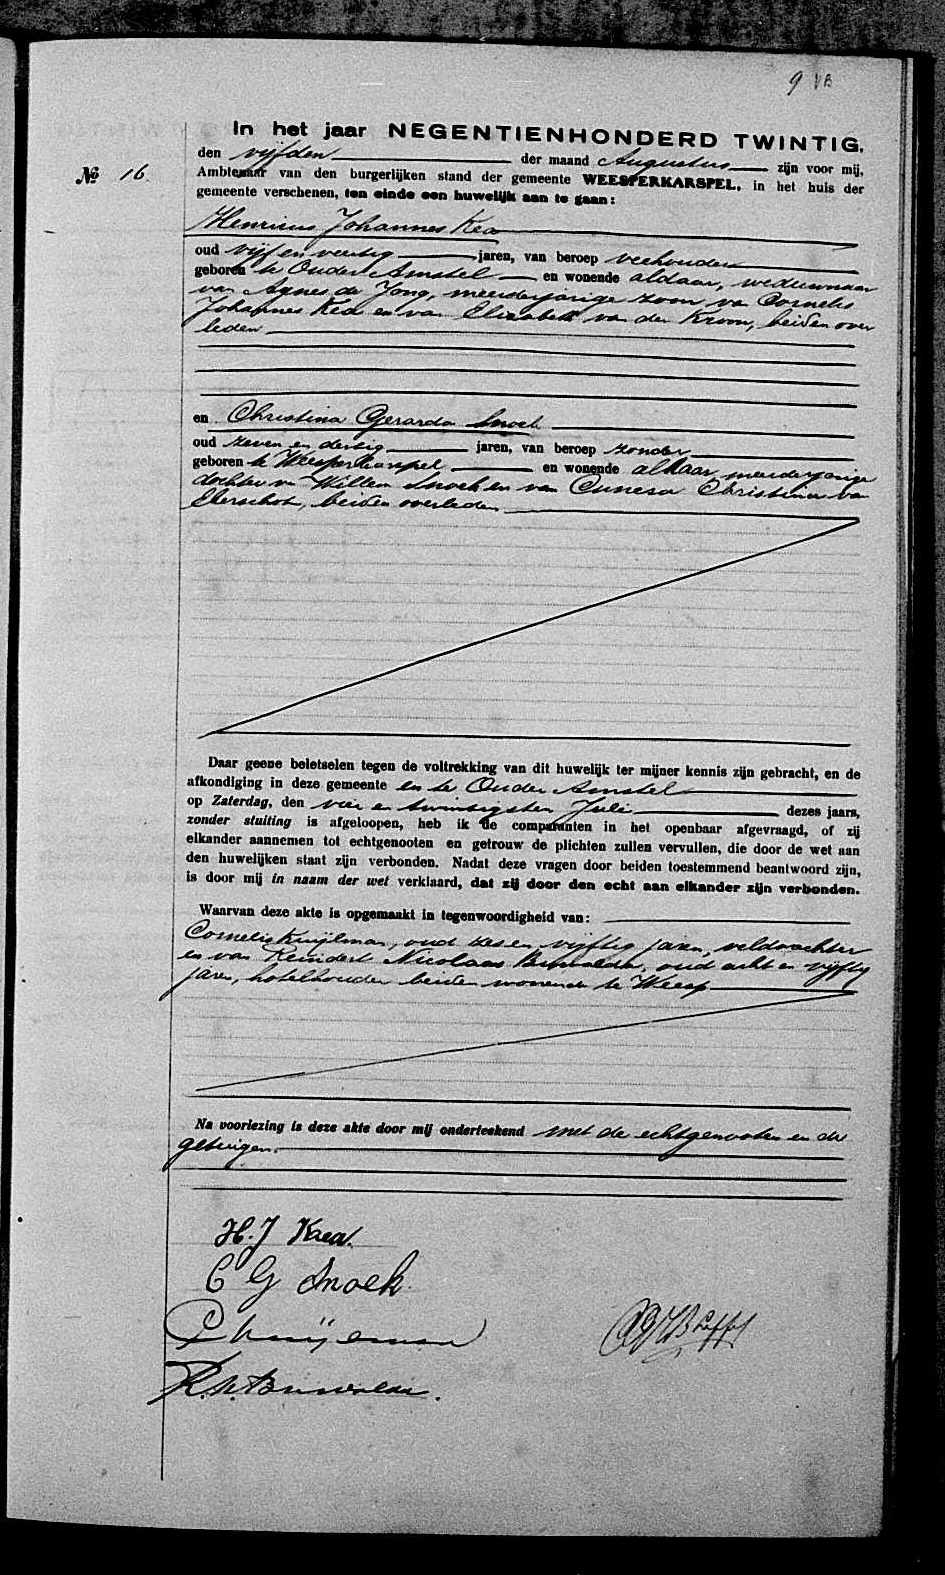 9 VB
In het jaar NEGENTIENHONDERD TWINTIG,
den vijfden der maand Augustus zijn voor mij,
No 16. Ambtenaar van den burgerlijken stand der gemeente WEESPERKARSPEL, in het huis der
gemeente verschenen, ten einde een huwelijk aan te gaan:
Henricus Johannes Kea
oud vijf en veertig jaren, van beroep veehouder
geboren te Ouder Amstel en wonende aldaar, weduwnaar
van Agnes de Jong, meerderjarige zoon van Cornelis
Johannes Kea en van Elizabeth van der Kroon, beiden over
leden
en Christina Gerarda Snoek
oud zeven en dertig jaren, van beroep zonder
geboren te Weesperkarspel en wonende aldaar, meerderjarige
dochter van Willem Snoek en van Cunera Christina van
beiden overleden
Daar geene beletselen tegen de voltrekking van dit huwelijk ter mijner kennis zijn gebracht, en de
afkondiging in deze gemeente en te Ouder Amstel
op Zaterdag, den vier en twintigsten Juli dezes jaars,
zonder stuiting is afgeloopen, heb ik de comparanten in het openbaar afgevraagd, of zij
elkander aannemen tot echtgenooten en getrouw de plichten zullen vervullen, die door de wet aan
den huwelijken staat zijn verbonden. Nadat deze vragen door beiden toestemmend beantwoord zijn,
is door mij in naam der wet verklaard, dat zij door den echt aan elkander zijn verbonden.
Waarvan deze akte is opgemaakt in tegenwoordigheid van:
Cornelis Kuijlman, oud zes en vijftig jaren, veldwachter
en van Reindert Nicolaas oud acht en vijftig
jaren, hotelhouder beiden wonende te Weesp
Na voorlezing is deze akte door mij onderteekend met de echtgenooten en de
getuigen.
H. J Kea.
C G Snoek